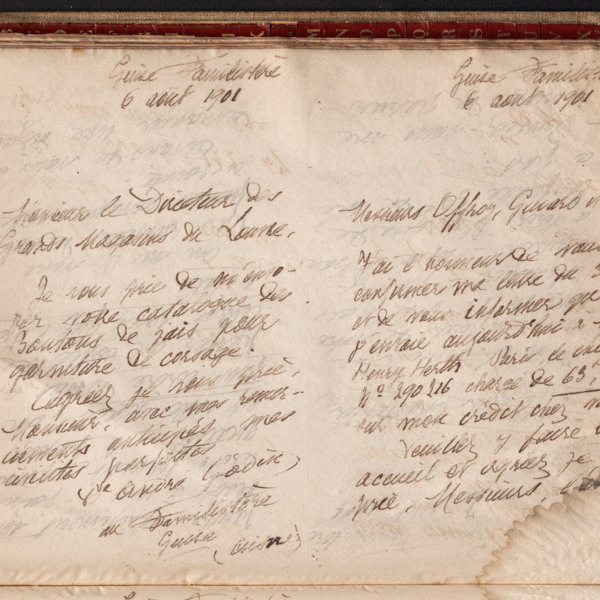 M N O P Q R S T U V X
Guise Familistère
6 août 1901
Monsieur le Directeur des
Grands Magasins du Louvre,
Je vous prie de m'envo-
yer votre catalogue des
boutons de jais pour
garniture de corsage.
Agréez je vous prie,
Monsieur, avec mes remer-
ciements anticipés, mes
civilités parfaites
Vve André Godin,
au Familistère
Guise
(Aisne)
Guise Familis
6 août 1901
Messieurs Offroy, Guiard
J'ai l'honneur de vous
confirmer ma lettre du
et de vous informer que
j'envoie aujourd'hui à
Henry Herth Paris le
Nº 290216 chargé de 63,
sur mon crédit chez
Veuillez y faire
accueil et agréez je
prie, Messieurs,